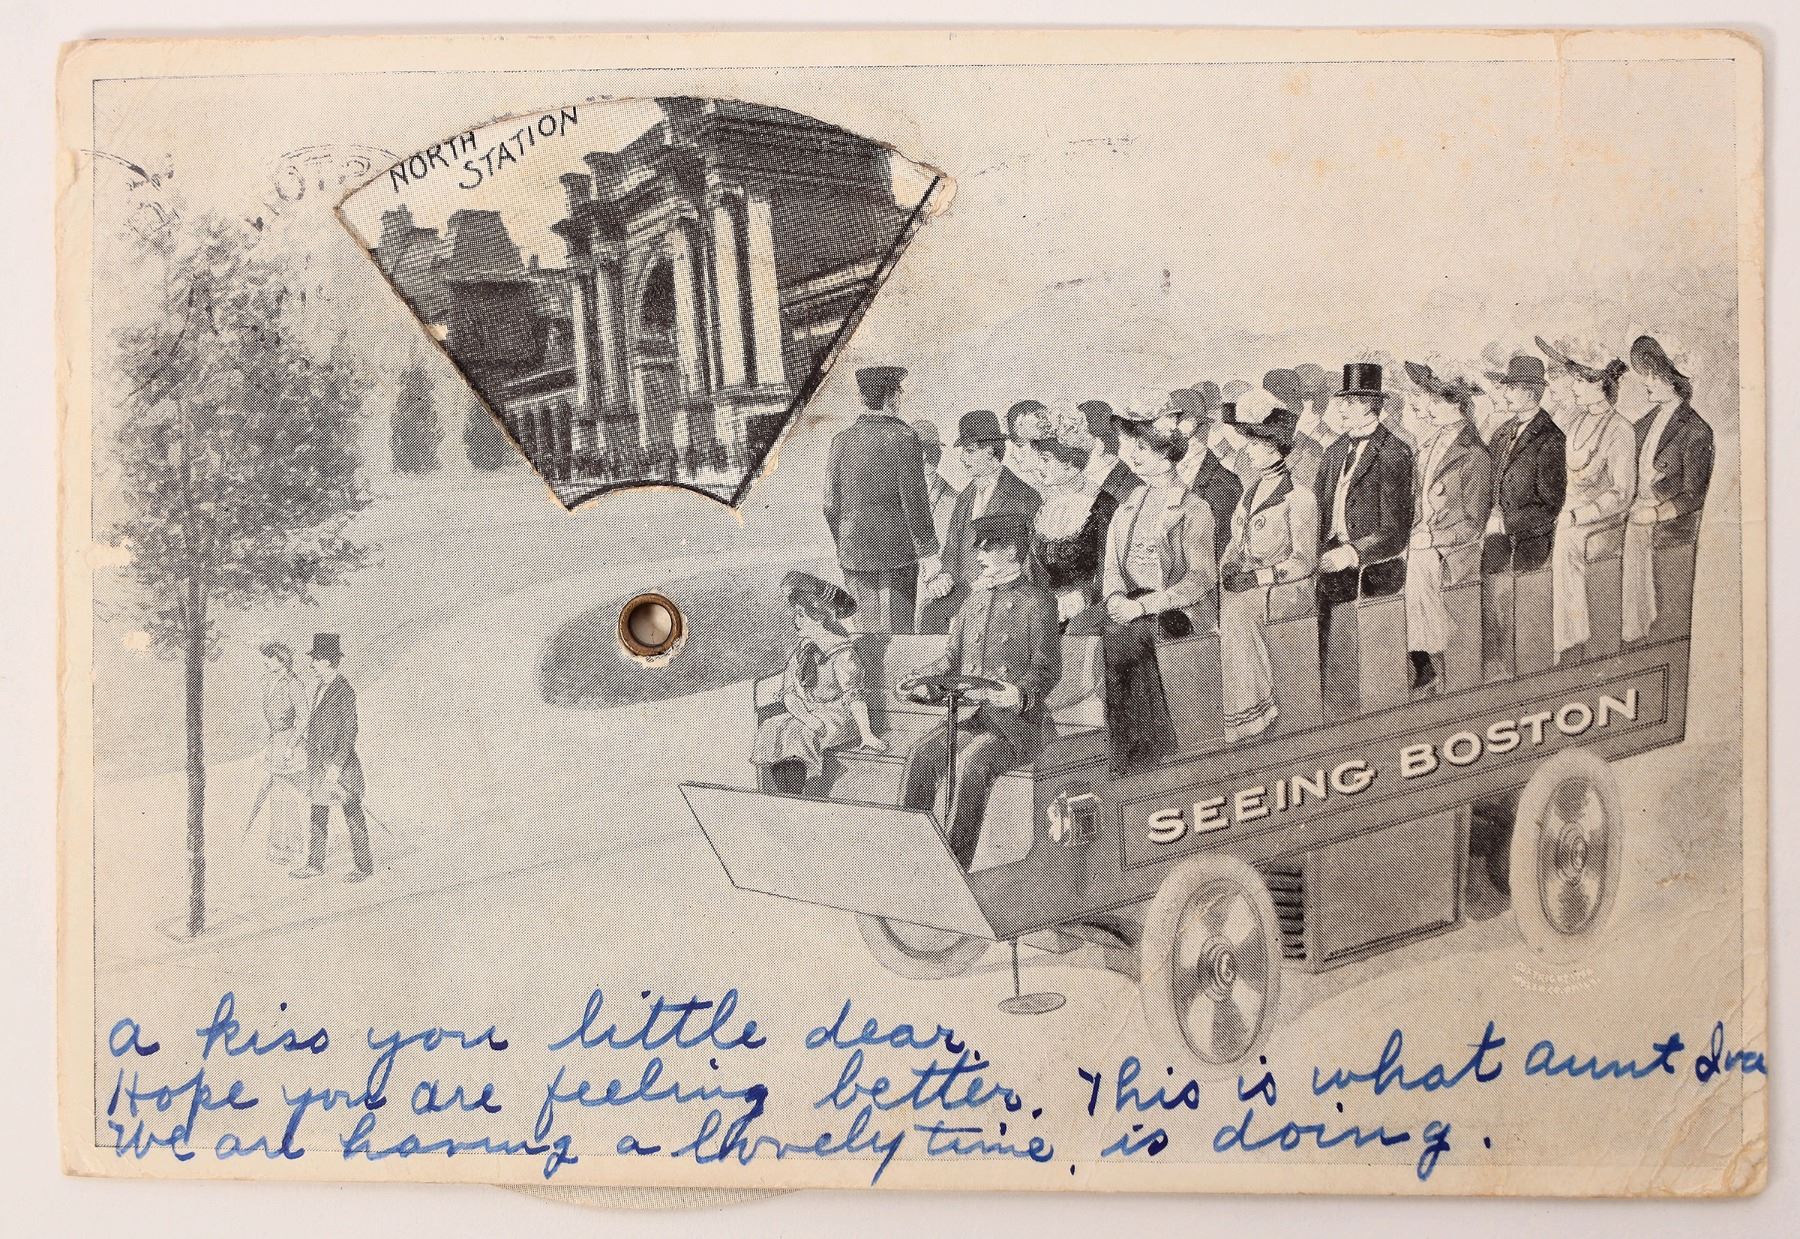 NORTH
STATION
SEEING BOSTON
a kiss you little dear.
Hope you are feeling better.
We are having a lovely time.
This is what aunt Iva
is doing.